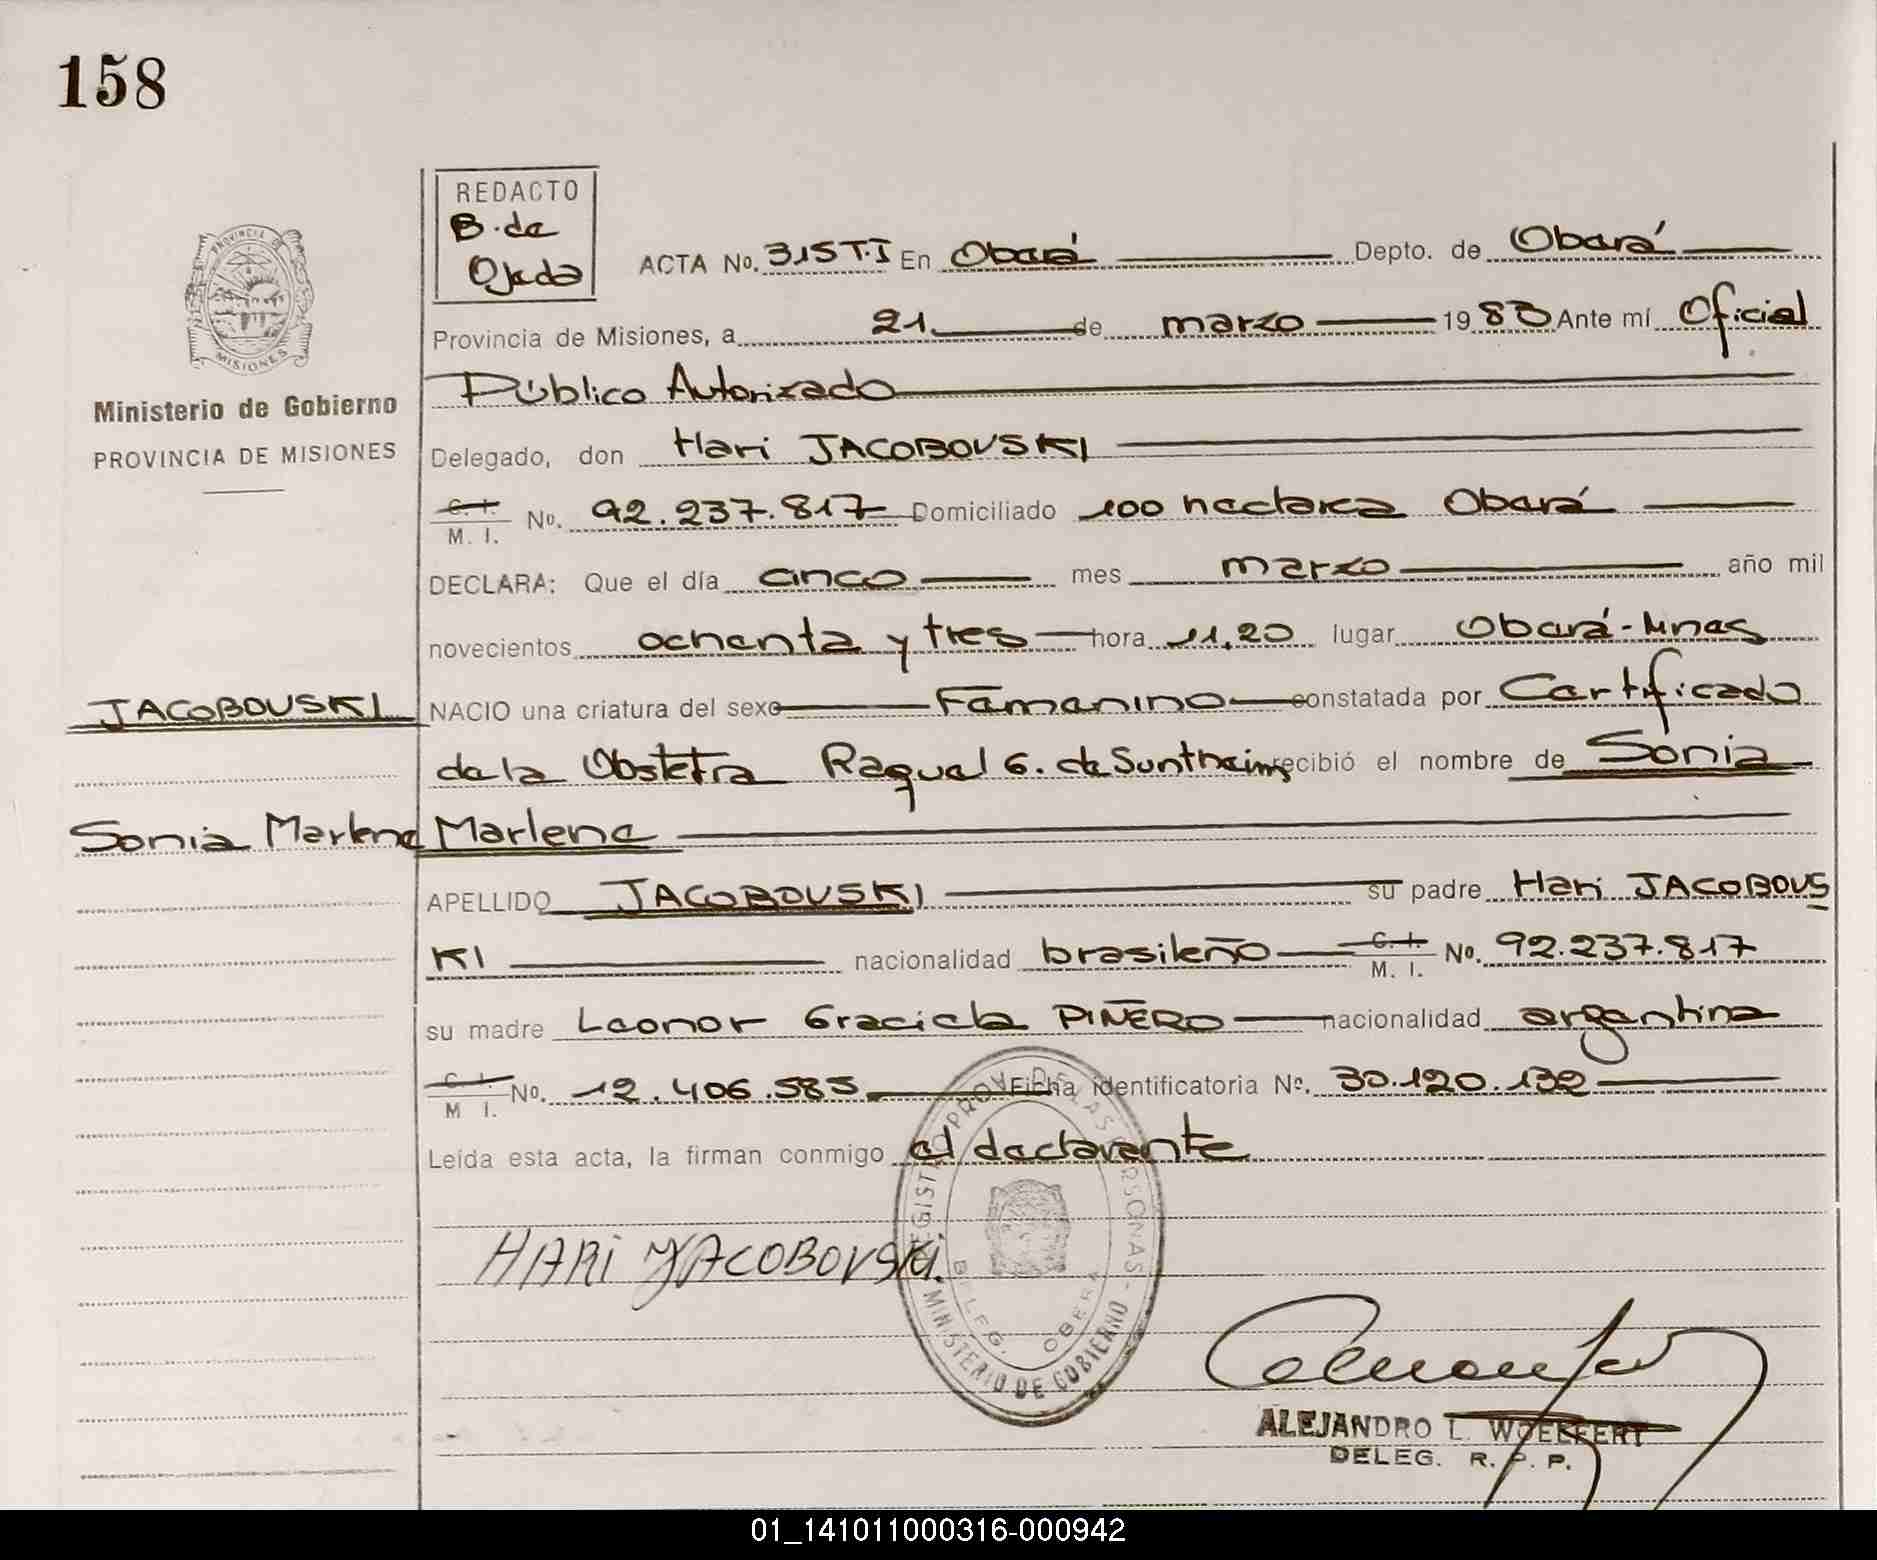 158
REDACTO
B. de
Ojeda
ACTA No. 315 T.I En Oberá Depto. de Oberá
Provincia de Misiones, a 21 de marzo 1983 Ante mí Oficial
Público Autorizado
PROVINCIA DE
MISIONES
Ministerio de Gobierno
PROVINCIA DE MISIONES
Delegado, don Hari JACOBOVSKI
C. I.
M. I. No. 92.237.817 Domiciliado 100 hectarea Oberá
DECLARA: Que el día cinco mes marzo año mil
novecientos ochenta y tres hora 11,20 lugar Oberá-Mnes
JACOBOVSKI
NACIO una criatura del sexo Femenino constatada por Certificado
de la Obstetra Raquel G. de Suntheim recibió el nombre de Sonia
Sonia Marlene
Marlene
APELLIDO JACOBOVSKI su padre Hari JACOBOVS
KI nacionalidad brasileño C. I.
M. I. No. 92.237.817
su madre Leonor Graciela PIÑERO nacionalidad argentina
C. I.
M I. No. 12.406.585 Ficha identificatoria No. 30.120.132
Leída esta acta, la firman conmigo el declarante
HARI JACOBOVSKI.
REGISTRO PROV. DE LAS PERSONAS -
MINISTERIO DE GOBIERNO
DELEG. OBERA
ALEJANDRO L. WOELFERT
DELEG. R. P. P.
01_141011000316-000942